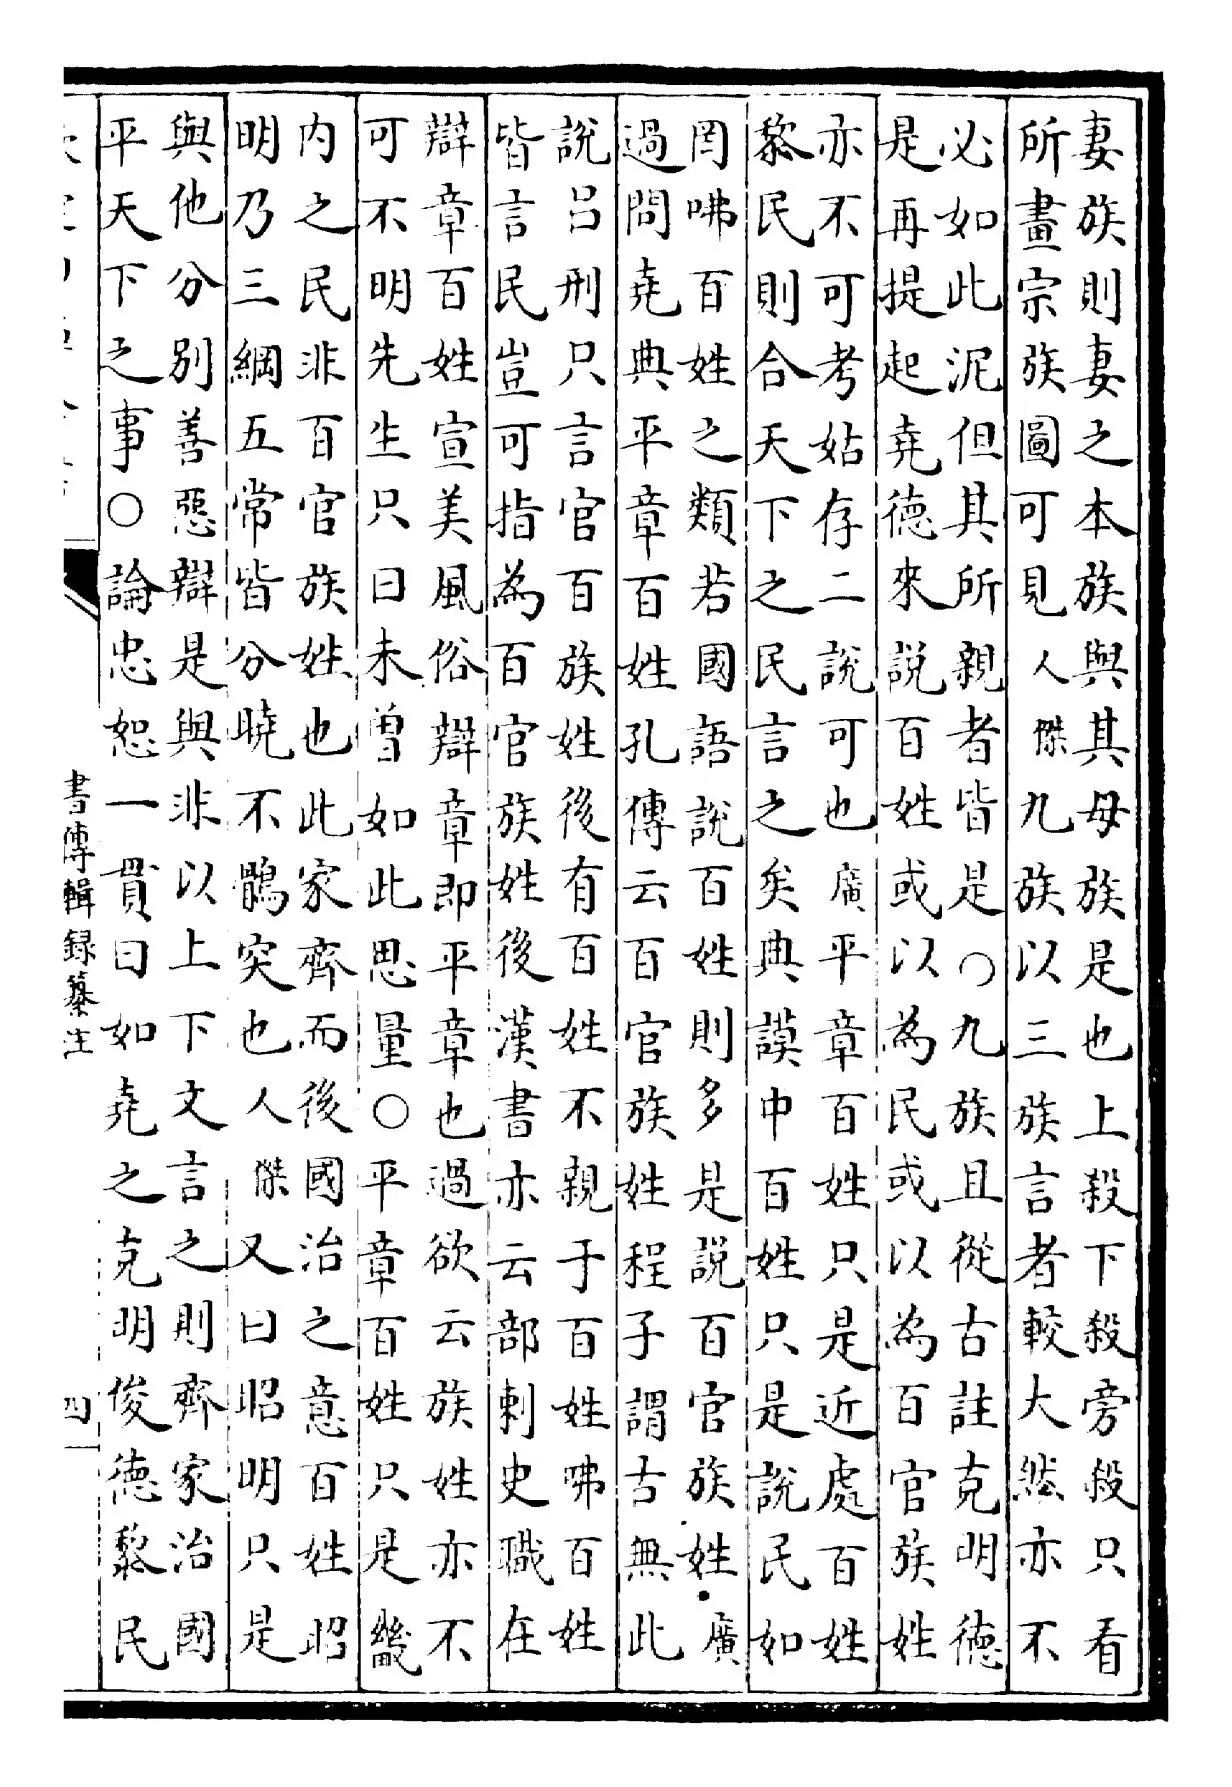 妻族則妻之本族與其母族是也上殺下殺旁殺只看
所畫宗族圖可見人傑九族以三族言者較大然亦不
必如此泥但其所親者皆是○九族且從古註克明德
是再提起堯德來說百姓或以為民或以為百官族姓
亦不可考姑存二說可也廣平章百姓只是近處百姓
黎民則合天下之民言之矣典謨中百姓只是說民如
罔咈百姓之類若國語說百姓則多是說百官族姓廣
過問堯典平章百姓孔傳云百官族姓程子謂古無此
說呂刑只言官百族姓後有百姓不親于百姓咈百姓
皆言民豈可指為百官族姓後漢書亦云部刺史職在
辯章百姓宣美風俗辯章即平章也過欲云族姓亦不
可不明先生只曰未曾如此思量○平章百姓只是畿
内之民非百官族姓也此家齊而後國治之意百姓昭
明乃三綱五常皆分曉不鶻突也人傑又曰昭明只是
與他分別善惡辯是與非以上下文言之則齊家治國
平天下之事○論忠恕一貫曰如堯之克明俊德黎民
書傳輯録纂注
四